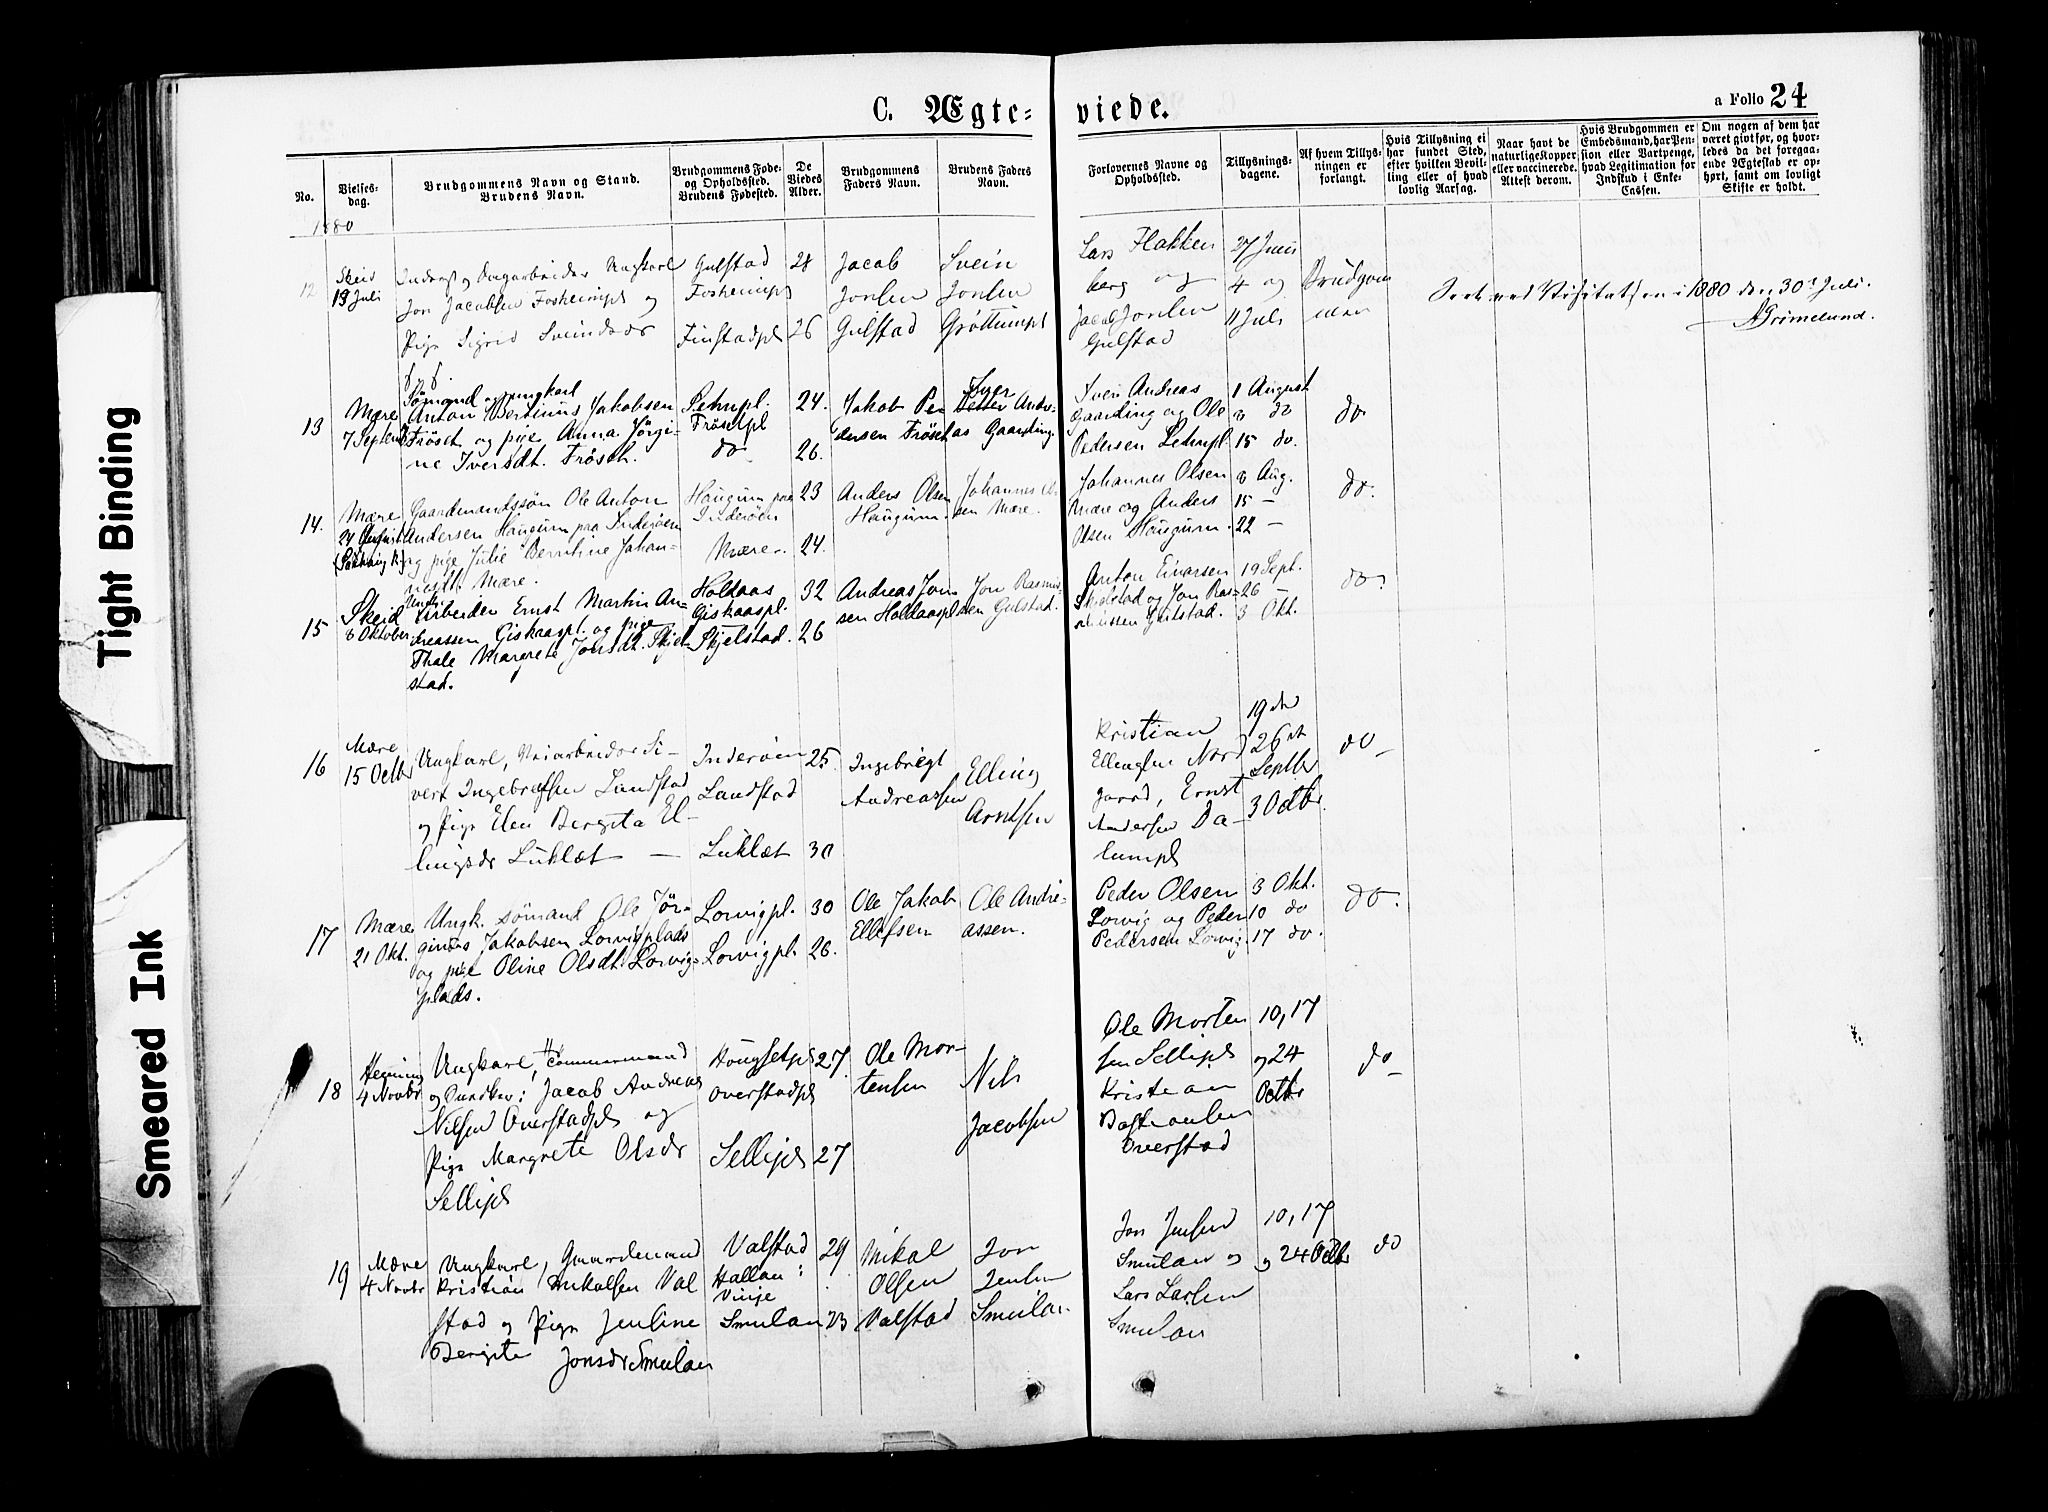 Tight Binding
Smeared Ink
C. Ægte-
viede.
a Folio 24
No.
Vielses-
dag.
Brudgommens Navn og Stand.
Brudens Navn.
Brudgommens Føde-
og Opholdssted.
Brudens Fødested.
De
Viedes
Alder.
Brudgommens
Faders Navn.
Brudens Faders
Navn.
Forlovernes Navne og
Opholdssted.
Tillysnings-
dagene.
Af hvem Tillys-
ningen er
forlangt.
Hvis Tillysning ei
har fundet Sted,
efter hvilken Bevil-
ling eller af hvad
lovlig Aarsag.
Naar havt de
naturlige Kopper
eller vaccinerede.
Attest derom.
Hvis Brudgommen er
Embedsmand, har Pen-
sion eller Vartpenge,
hvad Legitimation for
Indskud i Enke-
Cassen.
Om nogen af dem har
været givt før, og hvor-
ledes da det foregaa-
ende Ægteskab er op-
hørt, samt om lovligt
Skifte er holdt.
1880
12
Skeid
13 Juli
Inderst og Dagarbeider Ungkarl
Jon Jacobsen Fosheimpl og
Pige Sigrid Sveinsdr
Gulstad
Fosheimpl
Finstadpl
28
26
Jacob
Jonsen
Gulstad
Svein
Jonsen
Gröttumpl
Lars Flakken
berg og
Jacob Jonsen
Gulstad
27 Juni
4 og
11 Juli
Brudgom
men
Seet ved Visitatsen i 1880 den 30te Juli.
AGrimelund.
13
Mære
7 Septemb
Sømand og ungkarl
Anton Bertinus Jakobsen
Fröset og pige Anna Jörgi-
ne Iversdt. Fröset.
Lehnpl.
Frösetpl
do
24.
26.
Jakob Pe-
dersen Fröset
Iver
Andre-
as Gaarding
Sven Andreas
Gaarding og Ole
Pedersen Lehnpl.
1 August
8 do
15 do.
do
14.
Mære
27 August
Gaardmandssön Ole Anton
Andersen Haugum paa Inderöen
og pige Julie Berntine Johan-
nesdt. Mære.
Haugum paa
Inderöen
Mære.
23
24.
Anders Olsen
Haugum.
Johannes Ol-
sen Mære.
Johannes Olsen
Mære og Anders
Olsen Haugum.
8 Aug.
15 —
22 —
do.
15
Skeid
8 Oktober
Ungk.
Arbeider Ernst Martin An-
dreassen Giskaaspl. og pige
Thale Margrete Jonsdt. Skjel-
stad.
Holdaas
Giskaaspl.
Skjelstad.
32
26
Andreas Jon-
sen Holdaaspl
Jon Rasmus-
sen Gulstad.
Anton Einarsen
Skjelstad og Jon Ras-
mussen Gulstad.
19 Sept.
26
3 Okt.
do.
16
Mære
15 Octbr
Ungkarl, Veiarbeider Si-
vert Ingebretsen Landstad
og Pige Elen Bergita El-
lingsdr Luklæt —
Inderöen
Landstad
Luklæt
25
30
Ingebrigt
Andreassen
Elling
Arntsen
Kristian
Ellingsen Nord
gaard, Ernst
Andersen Da-
lumpl
19de
26de
Septbr
3 Octbr.
do —
17
Mære
21 Okt.
Ungk. sömand Ole Jör-
ginus Jakobsen Lorvigplads
og pige Oline Olsdt. Lorvig-
plads.
Lorvigpl.
Lorvigpl.
30
26.
Ole Jakob
Ellefsen
Ole Andre-
assen.
Peder Olsen
Lorvig og Peder
Pedersen Lorvig.
3 Okt.
10 do
17 do.
do.
18
Henning
4 Novbr
Ungkarl, Tømmermand
og Snedker: Jacob Andreas
Nilsen Overstadpl og
Pige Margrete Olsdr
Sellipl
Hougsetpl
Overstadpl
Sellipl
27.
27
Ole Mor-
tensen
Nils
Jacobsen
Ole Morten
sen Sellipl
Kristian
Bastiansen
Overstad
10, 17
og 24
Octbr
do —
19
Mære
4 Novbr
Ungkarl, Gaardmand
Kristian Mikalsen Val
stad og Pige Jensine
Bergite Jonsdr Smulan
Valstad
Hallan i
Vinje
Smulan
29
23
Mikal
Olsen
Valstad
Jon
Jensen
Smulan.
Jon Jensen
Smulan og
Lars Larsen
Smulan
10, 17
og 24 Octbr
do